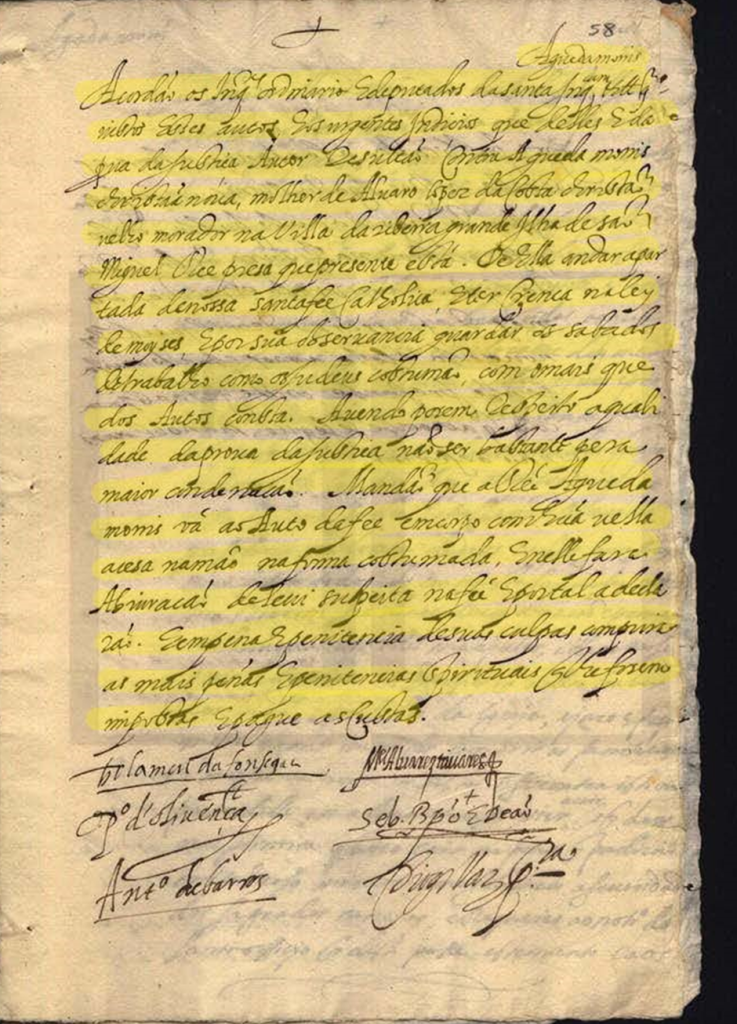 58
Agueda monis
Acordão os Inqres ordinario E deputados da santa Inq
vistos Estes autos E os urgentes Indicios que delles E da
prova da Justiça Autor Resultão Contra Agueda monis
christaã nova, molher de Alvaro lopez da Costa christaõ
velho morador na Villa da ribeira grande Ilha de saõ
Miguel Ree presa que presente está. De Ella andar apar
tada de nossa santa fee Catholica, E ter Crença na lei
de moyses, E por sua observancia guardar os sabados
de trabalho como os Judeus costumaõ, com o mais que
dos Autos consta. Avendo porem Respeito a quali
dade da prova da Justiça naõ ser bastante pera
maior condenaçaõ. Mandaõ que a Ree Agueda
monis vá ao Auto da fee em corpo com huã vella
acesa na maõ na forma costumada, E nelle fará
Abiuraçaõ de levi suspeita na fee E por tal a decla
raõ. E em pena E penitencia de suas culpas comprirá
as mais penas E penitencias Spirituais que lhe forem
impostas E pague as Custas.
Bertolameu da fonsequa
Mel Alvarez tavares
Po d'olivença
Seb. Bpo E Deaõ
Anto de barros